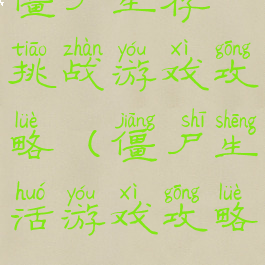 僵尸生存
tiāo zhàn yóu xì gōng
挑战游戏攻
lüè jiāng shī shēng
略（僵尸生
huó yóu xì gōng lüè
活游戏攻略